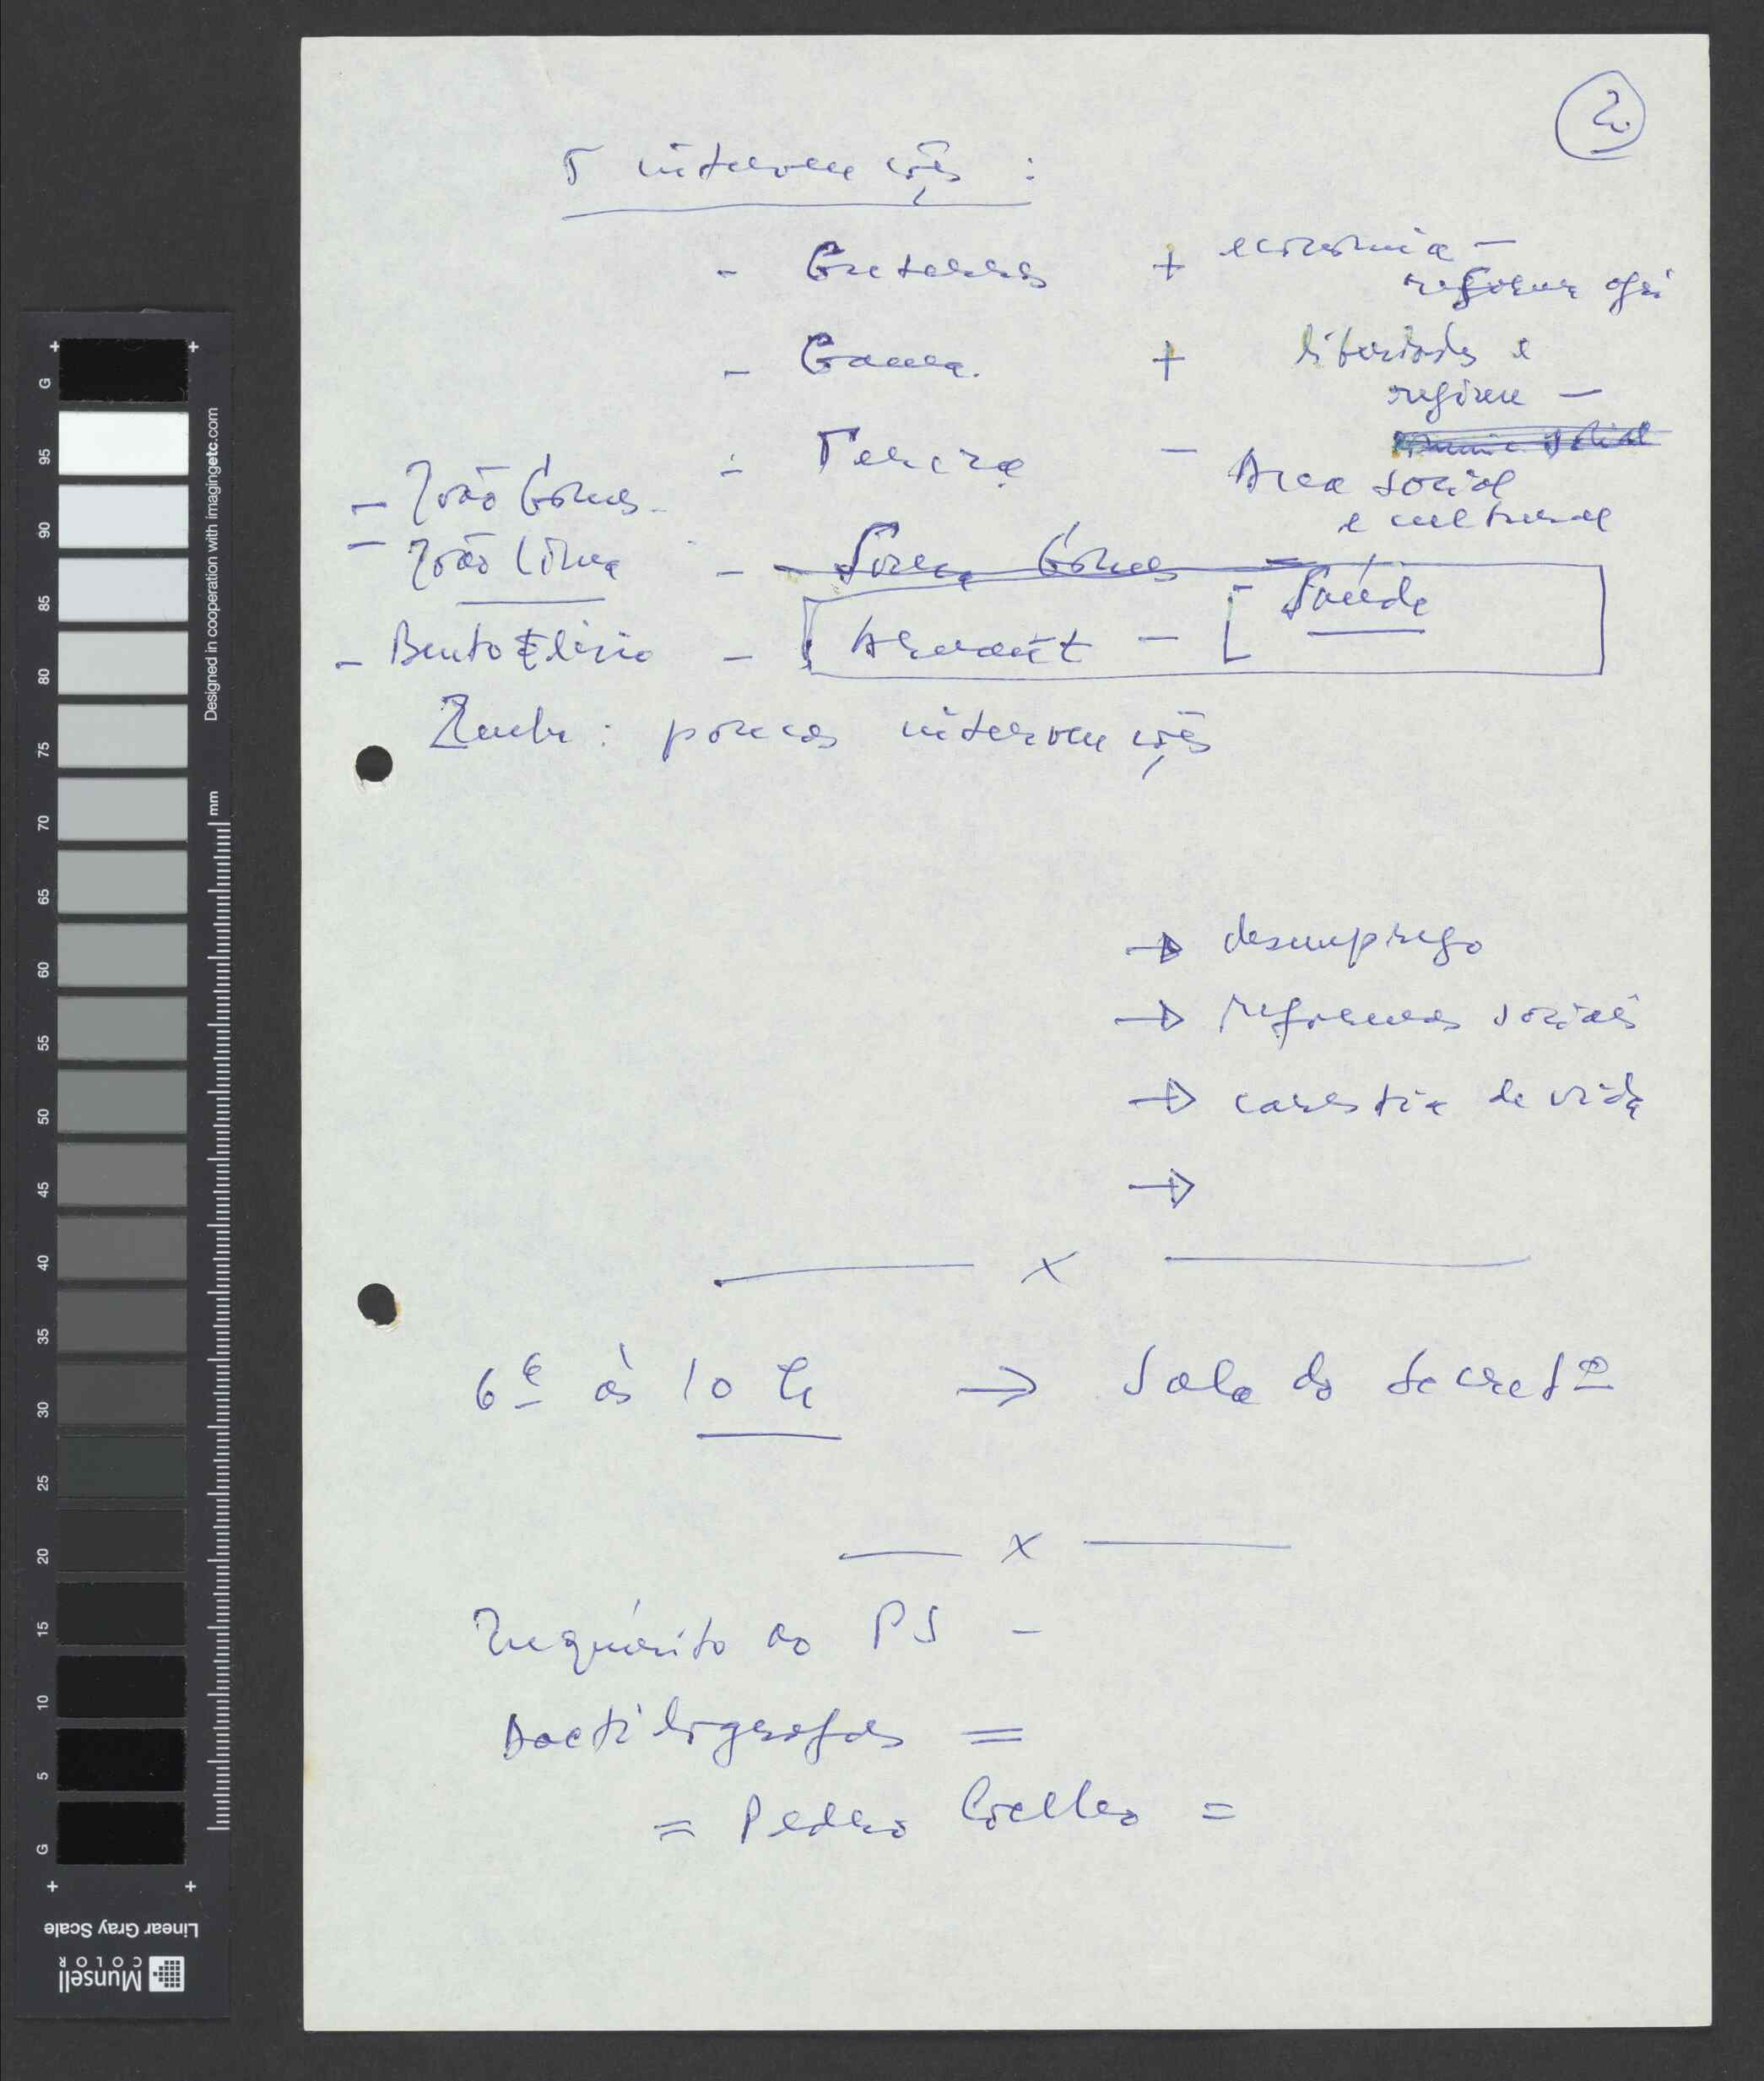 2
5 intervenções :
- Guterres + economia -
reforma agrí
- Gama. + liberdades e
regime -
- Tereza - Area social
e cultural
- João Gomes -
- João Lima
- Sousa Gomes -
- Bento Elísio - Arnaut - [ Saúde
Zenha : poucas intervenções
→ desemprego
→ reformas sociais
→ carestia de vida
→
x
6ª às 10 h → Sala do Secretº
x
Inquérito ao PS -
Dactilógrafas =
= Pedro Coelho =
G 95 90 85 80 75 70 65 60 55 50 45 40 35 30 25 20 15 10 5 G
mm
Designed in cooperation with imagingetc.com
Linear Gray Scale
Munsell
COLOR